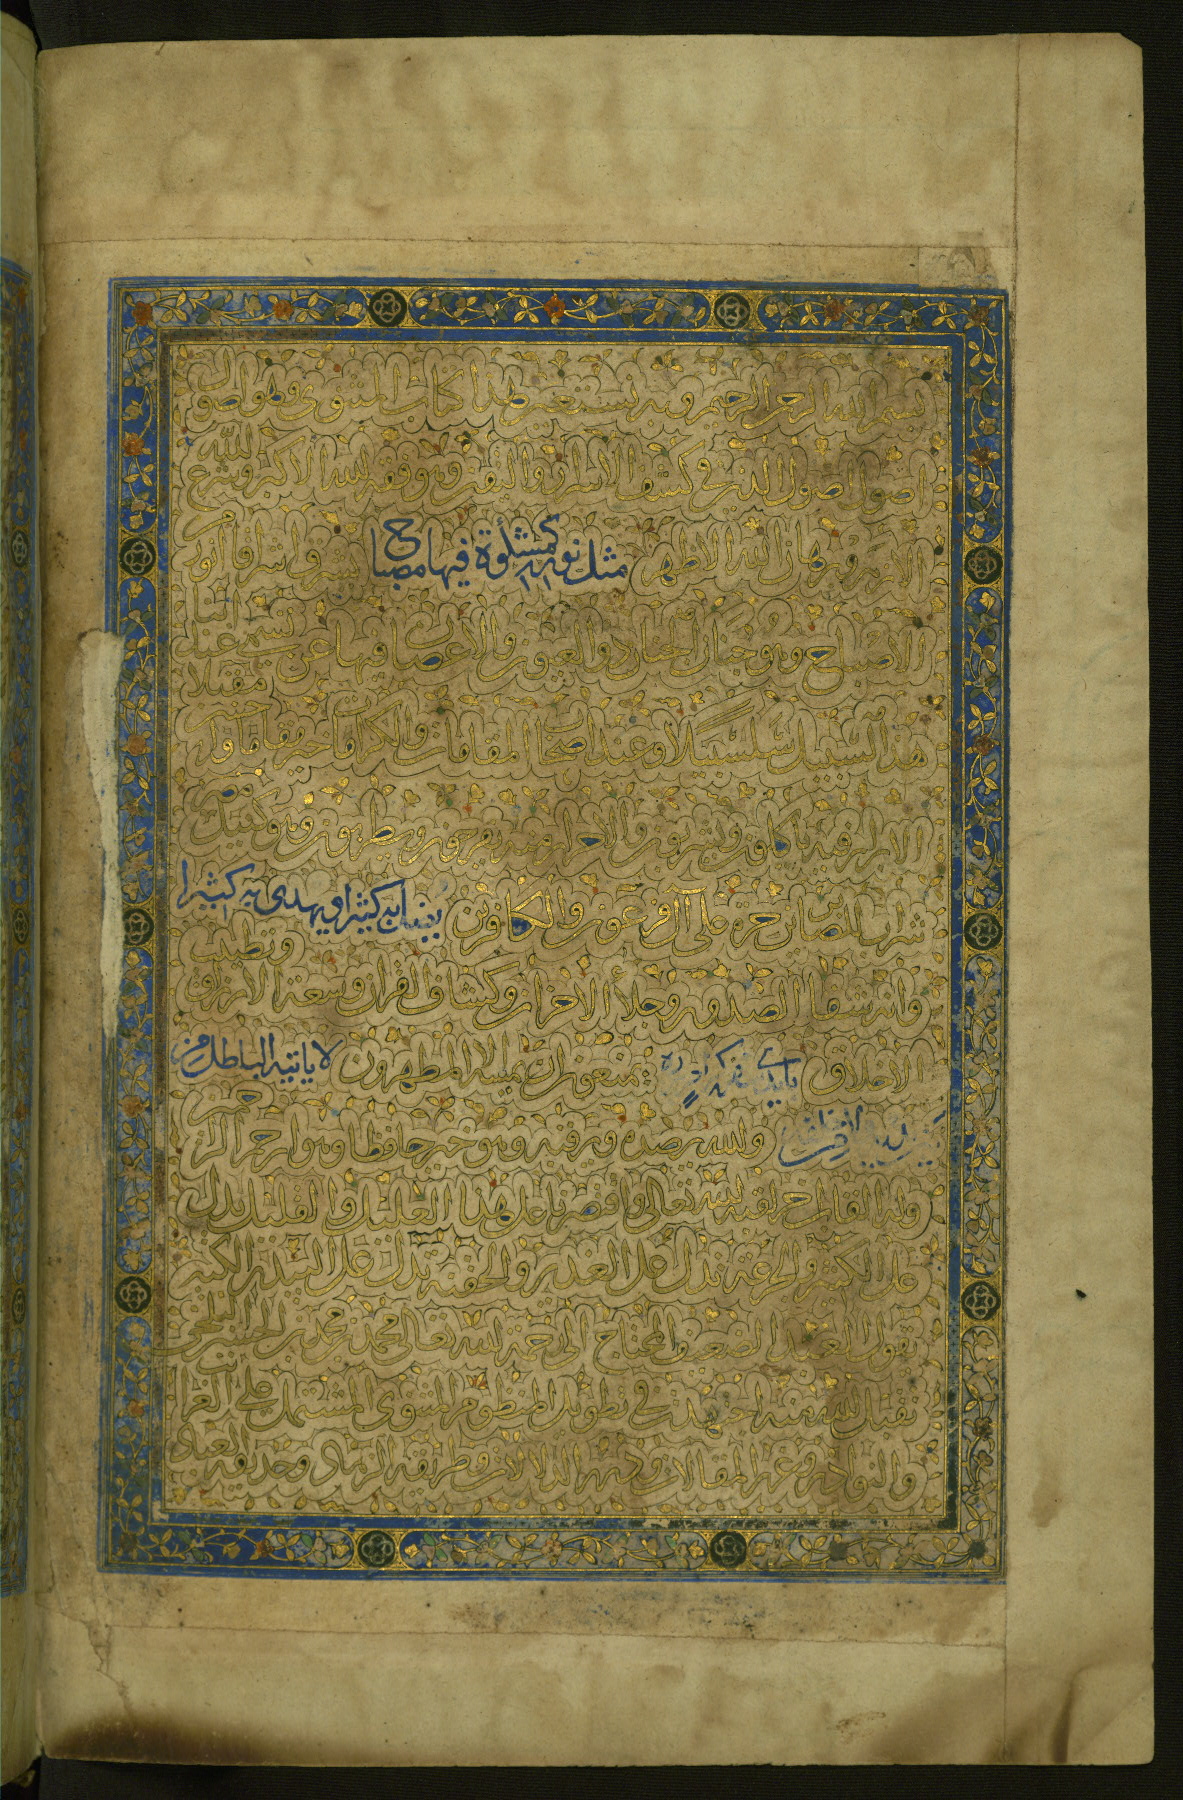 بسم الله الرحمن الرحيم وبه نستعين هذا كتاب المثنوى وهو اصول
اصول اصول الدين فى كشف الاسرار واليقين وهو فقه الله الاكبر وشرع الله
الازهر وبرهان الله الاظهر مثل نوره كمشكوة فيها مصباح يشرق اشراقا انور من
الاصباح وهو جنان الجنان ذو العيون والاغصان فيها عين تسمى عند ابناء
هذا السبيل سلسبيلا وعند اصحاب المقامات والكرامات خير مقاما واحسن مقيلا
الابرار فيه ياكلون ويشربون والاحرار منه يفرحون ويطربون وهو كنيل مصر
شراب للصابرين حسرة على آل فرعون والكافرين يضل به كثيرا ويهدى به كثيرا
وانه شفاء الصدور وجلاء الاحزان وكشاف القران وسعة الارزاق وتطييب
الاخلاق بايدى سفرة كرام بررة يمنعون ان لا يمسه الا المطهرون لا ياتيه الباطل من
بين يديه ولا من خلفه والله يرصده ويرقبه وهو خير حافظا وهو ارحم الراحمين
وله القاب اخر لقبه الله تعالى واقتصرنا على هذا القليل والقليل يدل
على الكثير والجرعة تدل على الغدير والحفنة تدل على البيدر الكبير
يقول العبد الضعيف المحتاج الى رحمة الله تعالى محمد بن محمد بن الحسين البلخى
تقبل الله منه اجتهدت فى تطويل المنظوم المثنوى المشتمل على الغرائب
والنوادر وغرر المقالات ودرر الدلالات وطريقة الزهاد وحديقة العباد